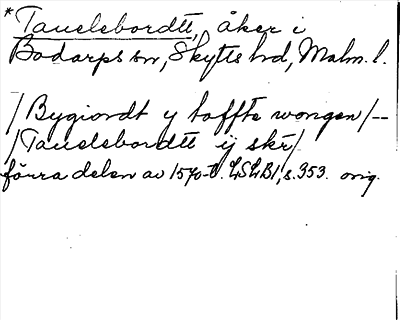 *Tauelebordtt, åker i
Bodarps sn, Skytts hd, Malm. l.
/Bygiordt y toffte wongen/--
/Tauelebordtt ij skr/
förra delen av 1570-t. LSLB1, s. 353. orig.